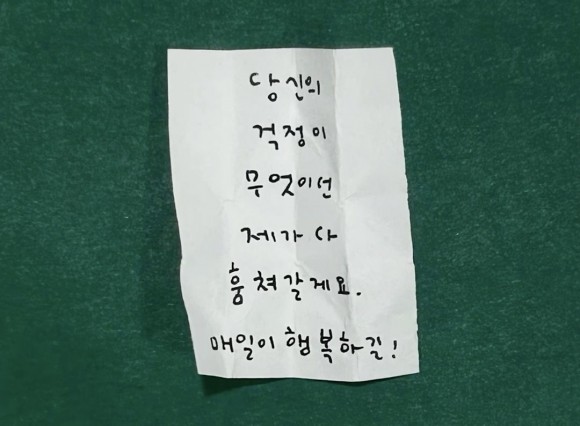 당신의
걱정이
무엇이던
제가 다
훔쳐갈게요.
매일이 행복하길!